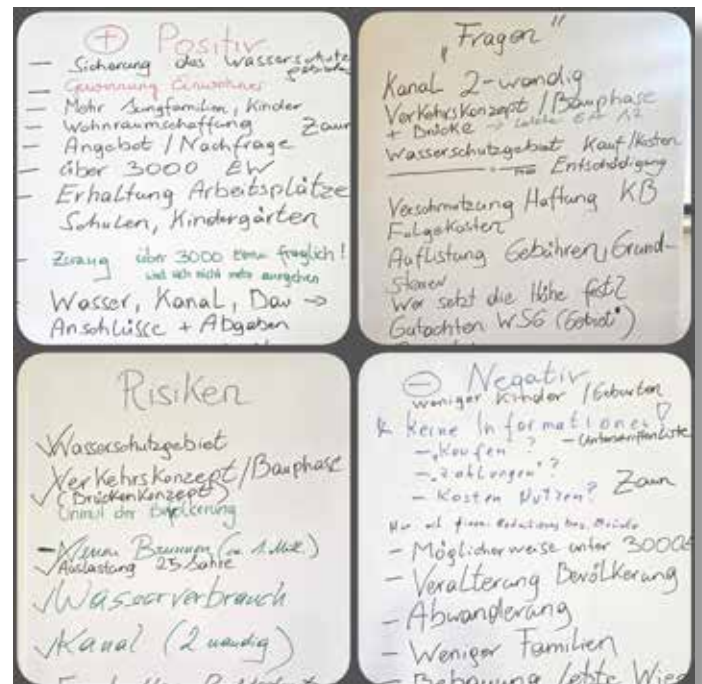 + Positiv
- Sicherung des Wasserschutz
gebietes
- Gewinnung Einwohner
- Mehr Jungfamilien, Kinder
- Wohnraumschaffung Zaun
- Angebot / Nachfrage
- über 3000 EW
- Erhaltung Arbeitsplätze
Schulen, Kindergärten
- Zuzug über 3000 fraglich!
wird sich nicht mehr ausgehen
Wasser, Kanal, Bau →
Anschlüsse + Abgaben
"Fragen"
Kanal 2-wandig
Verkehrskonzept / Bauphase
+ Brücke →
Wasserschutzgebiet Kauf/Kosten
Entschädigung
Verschmutzung Haftung KB
Folgekosten
Auflistung Gebühren, Grund-
steuer
Wer setzt die Höhe fest?
Gutachten WSG (Gebiet)
Risiken
✓ Wasserschutzgebiet
✓ Verkehrskonzept/Bauphase
✓ (Brückenkonzept)
Unmut der Bevölkerung
- Neuer Brunnen (ca. 1. Mill.)
✓ Auslastung 25 Jahre
✓ Wasserverbrauch
✓ Kanal (2 wandig)
- Negativ
weniger Kinder / Geburten
Keine Informationen!
- Unterschriftenliste
- "Kaufen"?
- "Zahlungen"?
- Kosten Nutzen? Zaun
- Möglicherweise unter 3000
- Veralterung Bevölkerung
- Abwanderung
- Weniger Familien
- Bebauung letzte Wies